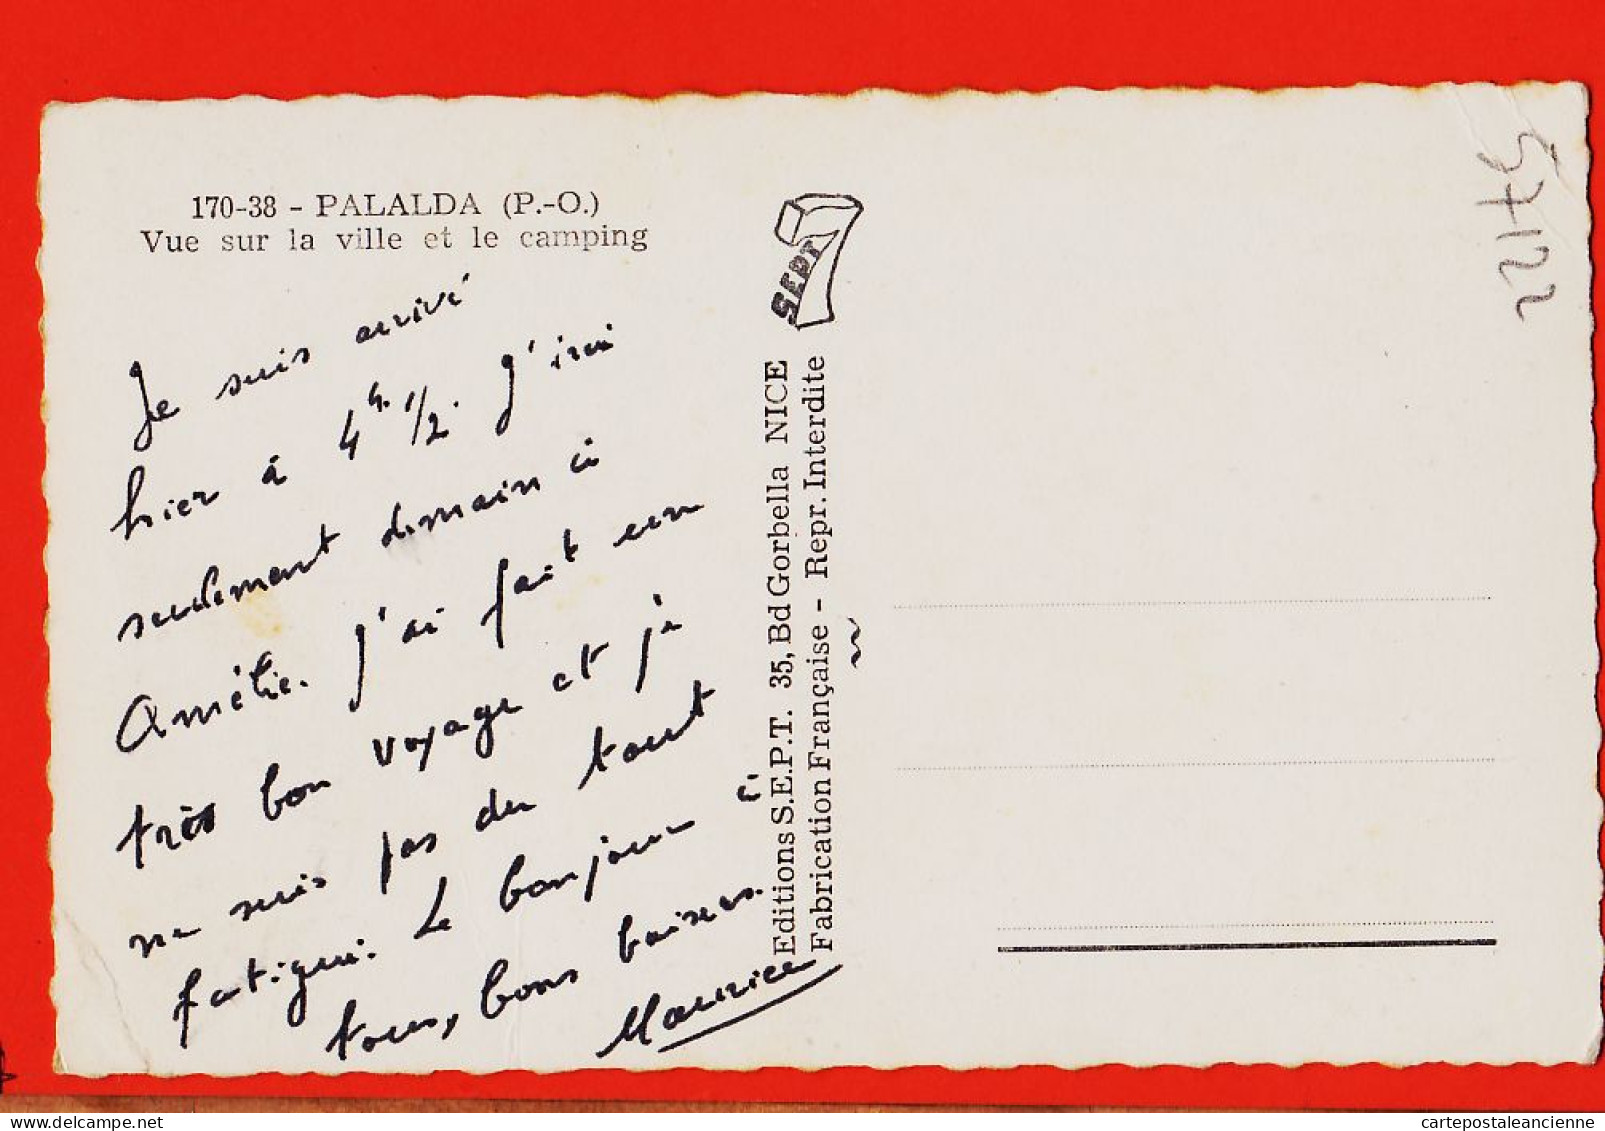 170-38 - PALALDA (P.-O.)
Vue sur la ville et le camping
Je suis arrivé
hier à 4h. 1/2. J'irai
seulement demain à
Amélie. J'ai fait un
très bon voyage et je
ne suis pas du tout
fatigué. Le bonjour à
tous, bons baisers.
Maurice
SEPT
Editions S.E.P.T. 35, Bd Gorbella NICE
Fabrication Française - Repr. Interdite
57122
cartepostaleancienne